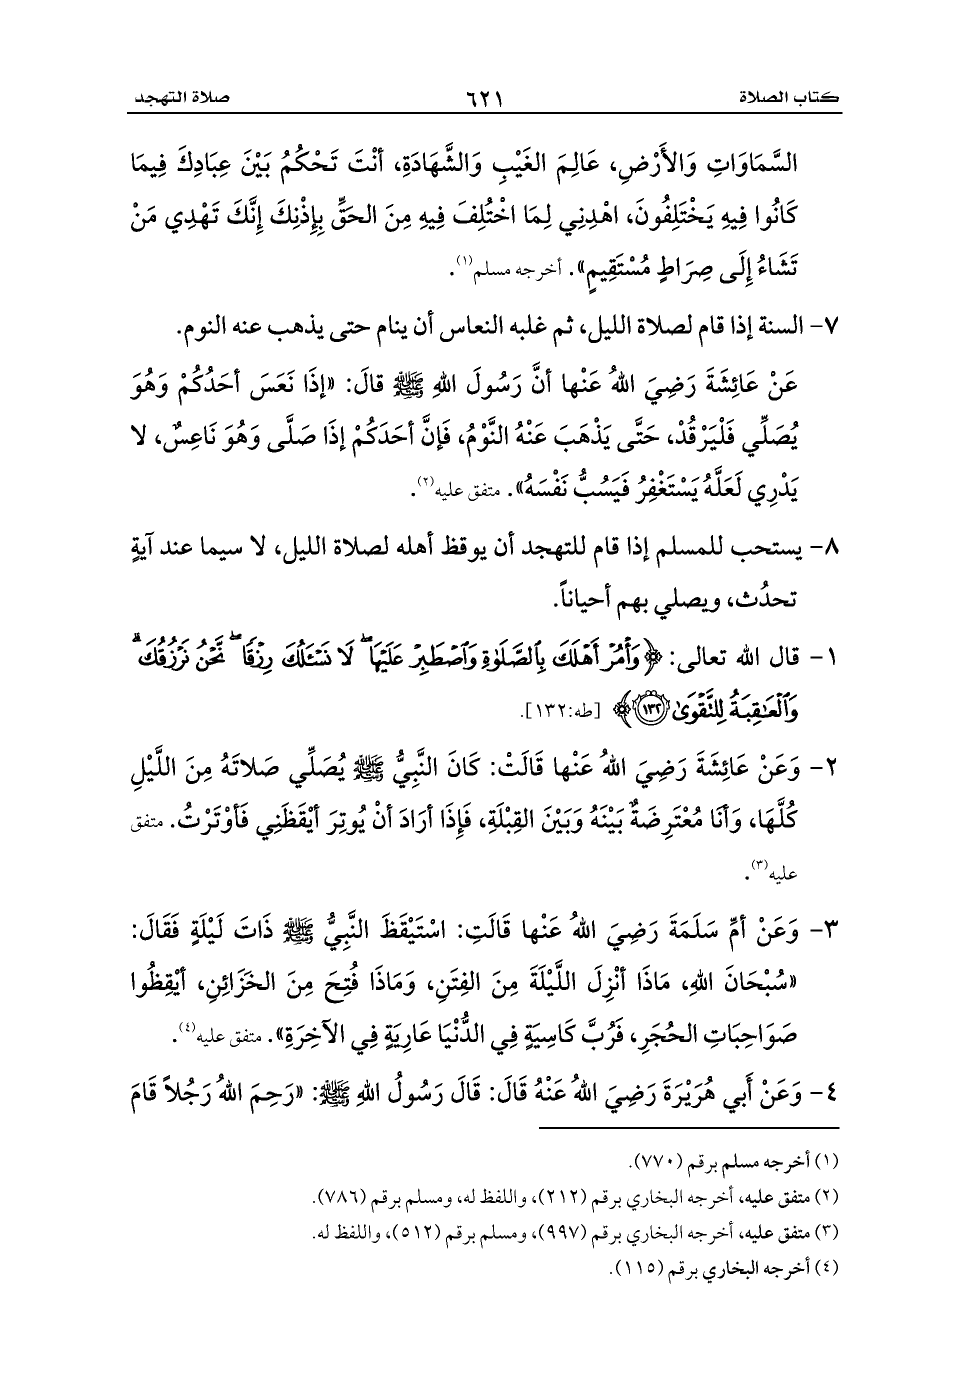 كتاب الصلاة ٦٢١ صلاة التهجد
السَّمَاوَاتِ وَالأَرْضِ، عَالِمَ الغَيْبِ وَالشَّهَادَةِ، أنْتَ تَحْكُمُ بَيْنَ عِبَادِكَ فِيمَا
كَانُوا فِيهِ يَخْتَلِفُونَ، اهْدِنِي لِمَا اخْتُلِفَ فِيهِ مِنَ الحَقِّ بِإِذْنِكَ إِنَّكَ تَهْدِي مَنْ
تَشَاءُ إِلَى صِرَاطٍ مُسْتَقِيمٍ». أخرجه مسلم(١).
٧- السنة إذا قام لصلاة الليل، ثم غلبه النعاس أن ينام حتى يذهب عنه النوم.
عَنْ عَائِشَةَ رَضِيَ اللهُ عَنْها أنَّ رَسُولَ اللهِ ﷺ قالَ: «إذَا نَعَسَ أحَدُكُمْ وَهُوَ
يُصَلِّي فَلْيَرْقُدْ، حَتَّى يَذْهَبَ عَنْهُ النَّوْمُ، فَإنَّ أحَدَكُمْ إذَا صَلَّى وَهُوَ نَاعِسٌ، لا
يَدْرِي لَعَلَّهُ يَسْتَغْفِرُ فَيَسُبُّ نَفْسَهُ». متفق عليه(٢).
٨- يستحب للمسلم إذا قام للتهجد أن يوقظ أهله لصلاة الليل، لا سيما عند آيةٍ
تحدُث، ويصلي بهم أحياناً.
١- قال الله تعالى: ﴿وَأْمُرْ أَهْلَكَ بِالصَّلَوٰةِ وَاصْطَبِرْ عَلَيْهَا ۖ لَا نَسْـَٔلُكَ رِزْقًا ۖ نَّحْنُ نَرْزُقُكَ ۗ
وَالْعَـٰقِبَةُ لِلتَّقْوَىٰ ١٣٢﴾ [طه:١٣٢].
٢- وَعَنْ عَائِشَةَ رَضِيَ اللهُ عَنْها قَالَتْ: كَانَ النَّبِيُّ ﷺ يُصَلِّي صَلاتَهُ مِنَ اللَّيْلِ
كُلَّهَا، وَأنَا مُعْتَرِضَةٌ بَيْنَهُ وَبَيْنَ القِبْلَةِ، فَإذَا أرَادَ أنْ يُوتِرَ أيْقَظَنِي فَأوْتَرْتُ. متفق
عليه(٣).
٣- وَعَنْ أمِّ سَلَمَةَ رَضِيَ اللهُ عَنْها قَالَتِ: اسْتَيْقَظَ النَّبِيُّ ﷺ ذَاتَ لَيْلَةٍ فَقَالَ:
«سُبْحَانَ اللهِ، مَاذَا أنْزِلَ اللَّيْلَةَ مِنَ الفِتَنِ، وَمَاذَا فُتِحَ مِنَ الخَزَائِنِ، أيْقِظُوا
صَوَاحِبَاتِ الحُجَرِ، فَرُبَّ كَاسِيَةٍ فِي الدُّنْيَا عَارِيَةٍ فِي الآخِرَةِ». متفق عليه(٤).
٤- وَعَنْ أَبي هُرَيْرَةَ رَضِيَ اللهُ عَنْهُ قَالَ: قَالَ رَسُولُ اللهِ ﷺ: «رَحِمَ اللهُ رَجُلاً قَامَ
(١) أخرجه مسلم برقم (٧٧٠).
(٢) متفق عليه، أخرجه البخاري برقم (٢١٢)، واللفظ له، ومسلم برقم (٧٨٦).
(٣) متفق عليه، أخرجه البخاري برقم (٩٩٧)، ومسلم برقم (٥١٢)، واللفظ له.
(٤) أخرجه البخاري برقم (١١٥).